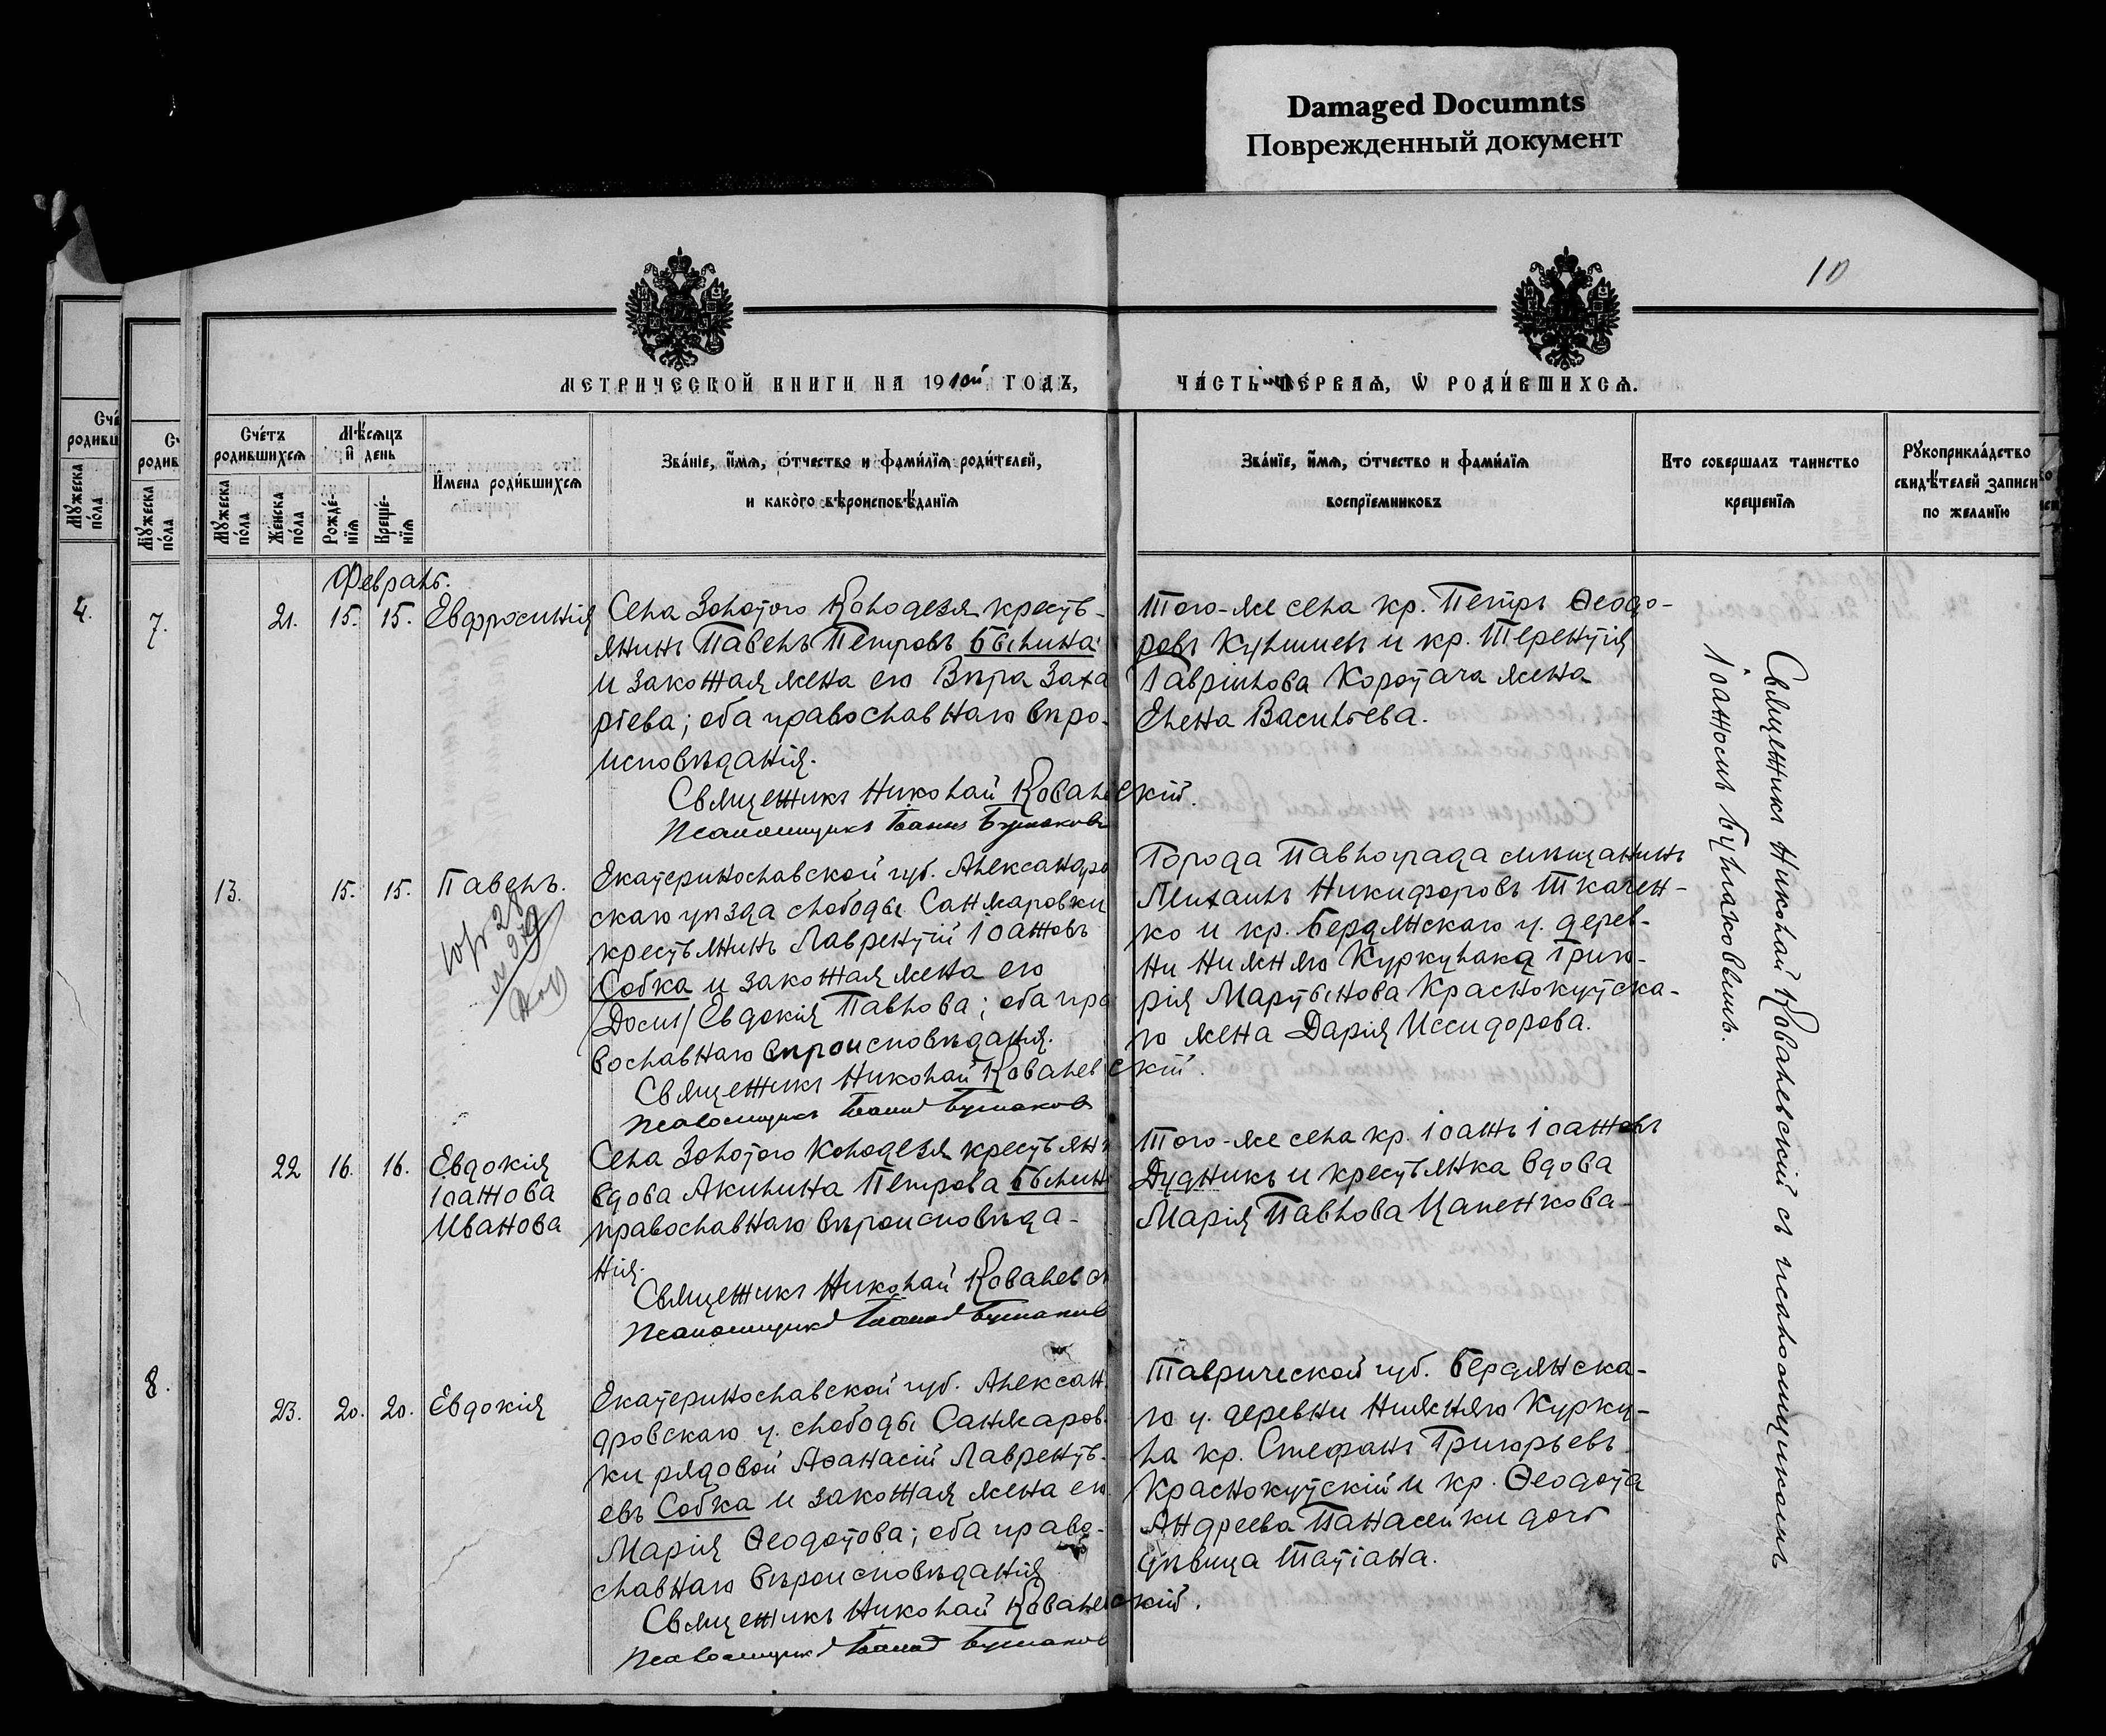 Damaged Documnts
Поврежденный документ
10
МЕТРИЧЕСКОЙ КНИГИ НА 1910й ГОДЪ,
ЧА́СТЬ ПЕ́РВАЯ, Ѡ РОДИ́ВШИХСЯ.
Сче́тъ
родившихся
Мѣ́сяцъ
и день
Имена роди́вшихся
Зва́ніе, и́мя, ѻ́тчество и фами́лїя роди́телей,
и како́го вѣроисповѣ́данія
Мꙋжеска по́ла
Же́нска по́ла
Рожде́-нїя
Креще́-нїя
Зва́нїе, и́мя, ѻ́тчество и фами́лїя
воспрїемниковъ
Кто совершалъ таинство
крещенїя
Рꙋкоприкла́дство
свидѣ́телей записи
по желанїю
4.
7.
8.
Февраль.
21.
15.
15.
Евфросинія
Села Золотого Колодезя кресть-
янинъ Павелъ Петровъ Былина
и законная жена его Вѣра Заха
ріева; оба православнаго вѣро-
исповѣданія.
Священникъ Николай Ковалевскій.
Псаломщикъ Іоаннъ Булаковъ
Того-же села кр. Петръ Ѳеодо-
ровъ Кулишъ и кр. Терентія
Гавріилова Коротача жена
Елена Васильева.
13.
15.
15.
Павелъ.
Екатеринославской губ. Александро
скаго уѣзда слободы Санжаровки
крестьянинъ Лаврентій Іоанновъ
Собка и законная жена его
/Досил/ Евдокія Павлова; оба пра
вославнаго вѣроисповѣданія.
Священникъ Николай Ковалевскій.
Псаломщикъ Іоаннъ Булаковъ
Города Павлограда мѣщанинъ
Михаилъ Никифоровъ Ткачен-
ко и кр. Бердянскаго у. дерев-
ни Нижняго Куркулака Григо-
рія Мартынова Краснокутска-
го жена Дарія Иссидорова.
22
16.
16.
Евдокія
Іоаннова
Иванова
Села Золотого Колодезя крестьянк
вдова Акилина Петрова Былин
православнаго вѣроисповѣда-
нія.
Священникъ Николай Ковалевск
Псаломщикъ Іоаннъ Булаковъ
Того-же села кр. Іоаннъ Іоанновъ
Дудникъ и крестьянка вдова
Марія Павлова Цапенкова.
23.
20.
20.
Евдокія
Екатеринославской губ. Алексан
дровскаго у. слободы Санжаров-
ки рядовой Аѳанасій Лаврентъ-
евъ Собка и законная жена его
Марія Ѳеодотова; оба право-
славнаго вѣроисповѣданія
Священникъ Николай Ковалевскій.
Псаломщикъ Іоаннъ Булаковъ
Таврической губ. Бердянска-
го у. деревни Нижняго Курку-
ла кр. Стефанъ Григорьевъ
Краснокутскій и кр. Ѳеодота
Андреева Панасейки дочь
дѣвица Татіана.
Священникъ Николай Ковалевскій съ псаломщикомъ
Іоанномъ Булаковымъ.